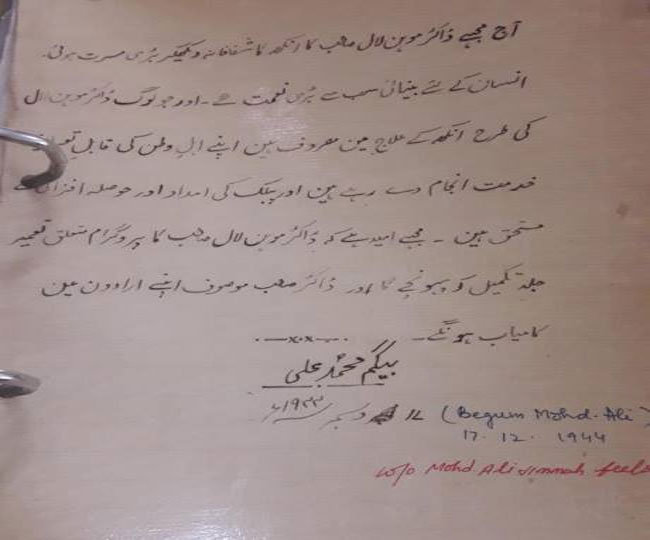 آج مجھے ڈاکٹر موہن لال صاحب کا آنکھ کا شفاخانہ دیکھکر بڑی مسرت ہوئی۔
انسان کے لئے بینائی سب سے بڑی نعمت ہے۔ اور جو لوگ ڈاکٹر موہن لال
کی طرح آنکھ کے علاج مین معروف ہین اپنے اہلِ وطن کی قابلِ
خدمت انجام دے رہے ہین اور پبلک کی امداد اور حوصلہ افزائی کے
مستحق ہین۔ مجھے امید ہے کہ ڈاکٹر موہن لال صاحب کا پروگرام متعلق تعمیر
جلد تکمیل کو پہونچے گا اور ڈاکٹر صاحب موصوف اپنے ارادون مین
کامیاب ہونگے۔
بیگم محمد علی
۱۷ دسمبر ۱۹۴۴ء (Begum Mohd. Ali)
17. 12. 1944
w/o Mohd Ali Jinnah